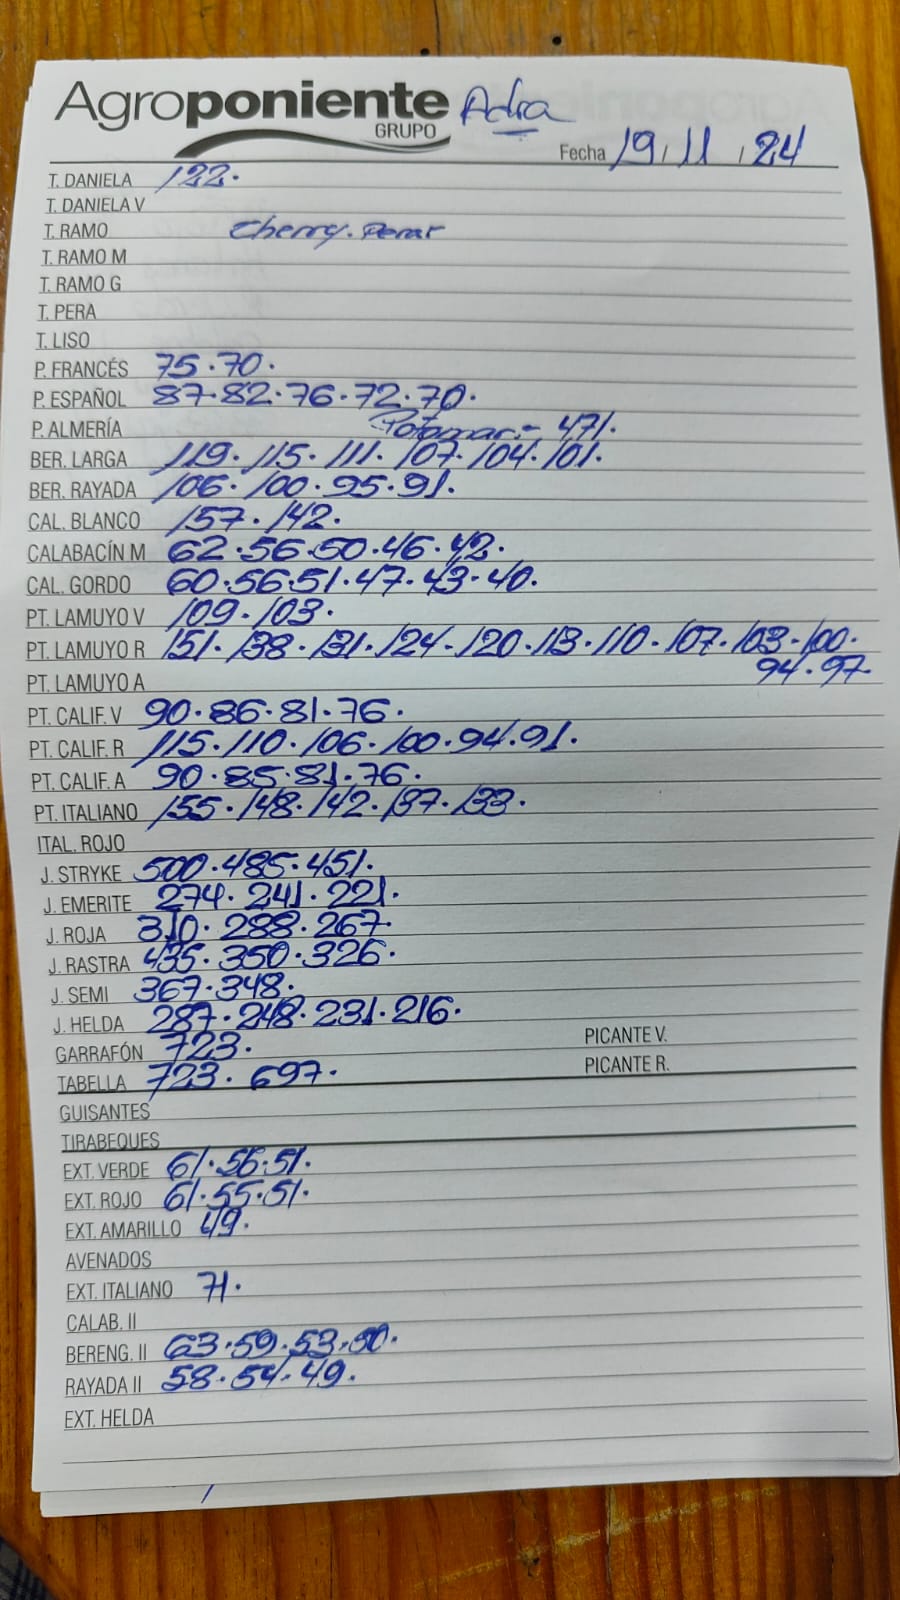 Agroponiente Adra
GRUPO
Fecha 19 / 11 / 24
T. DANIELA 122.
T. DANIELA V
T. RAMO Cherry. Perar
T. RAMO M
T. RAMO G
T. PERA
T. LISO
P. FRANCÉS 75.70.
P. ESPAÑOL 87.82.76.72.70.
P. ALMERÍA 471.
BER. LARGA 119.115.111.107.104.101.
BER. RAYADA 106.100.95.91.
CAL. BLANCO 157.142.
CALABACÍN M 62.56.50.46.42.
CAL. GORDO 60.56.51.47.43.40.
PT. LAMUYO V 109.103.
PT. LAMUYO R 151.138.131.124.120.113.110.107.103.100.
PT. LAMUYO A 94.97.
PT. CALIF. V 90.86.81.76.
PT. CALIF. R 115.110.106.100.94.91.
PT. CALIF. A 90.85.81.76.
PT. ITALIANO 155.148.142.137.133.
ITAL. ROJO
J. STRYKE 500.485.451.
J. EMERITE 274.241.221.
J. ROJA 310.288.267.
J. RASTRA 435.350.326.
J. SEMI 367.348.
J. HELDA 287.248.231.216.
GARRAFÓN 723. PICANTE V.
TABELLA 723.697. PICANTE R.
GUISANTES
TIRABEQUES
EXT. VERDE 61.56.51.
EXT. ROJO 61.55.51.
EXT. AMARILLO 49.
AVENADOS
EXT. ITALIANO 71.
CALAB. II
BERENG. II 63.59.53.50.
RAYADA II 58.54.49.
EXT. HELDA